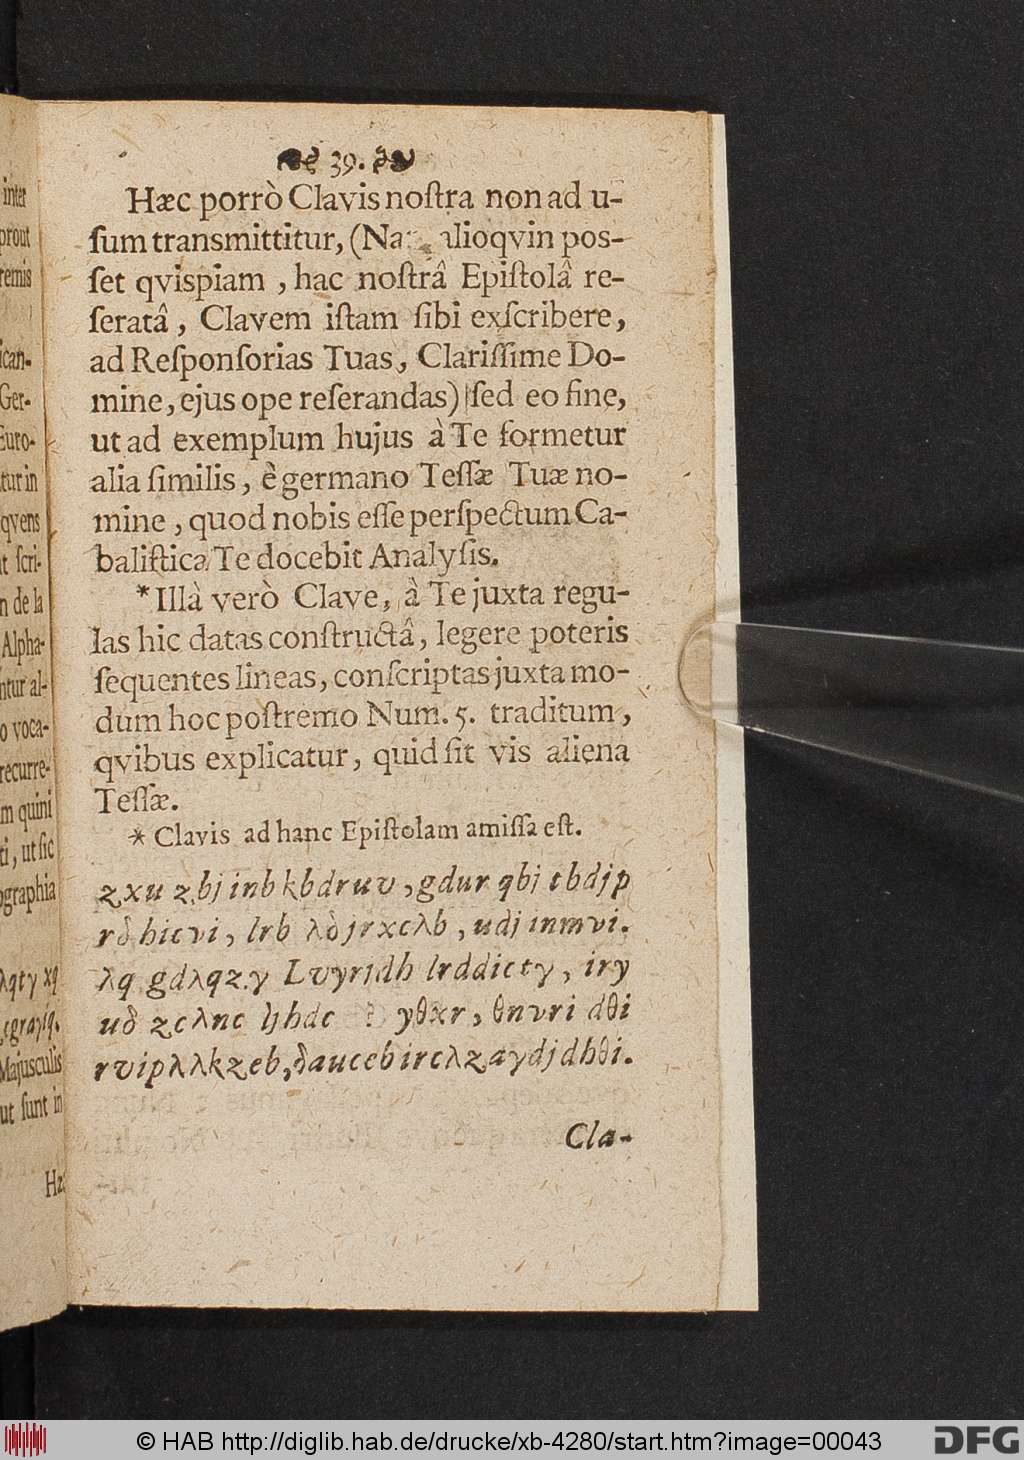 39.
Hæc porrò Clavis noſtra non ad u-
ſum transmittitur, (Na alioqvin poſ-
ſet qvispiam, hac noſtrâ Epiſtolâ re-
ſeratâ, Clavem iſtam ſibi exſcribere,
ad Reſponſorias Tuas, Clariſſime Do-
mine, ejus ope reſerandas) ſed eo fine,
ut ad exemplum hujus à Te formetur
alia ſimilis, è germano Teſſæ Tuæ no-
mine, quod nobis eſſe perſpectum Ca-
baliſtica Te docebit Analyſis.
*Illà verò Clave, à Te juxta regu-
las hic datas conſtructâ, legere poteris
ſequentes lineas, conſcriptas juxta mo-
dum hoc poſtremo Num. 5. traditum,
qvibus explicatur, quid ſit vis aliena
Teſſæ.
* Clavis ad hanc Epiſtolam amiſſa eſt.
zxu zbj inb kbdruv, gdur qbj tbdjp
rδ hicvi, lrb λδjrxcλb, udj inmvi.
λq gdλqzγ Lvyrjdh lrddictγ, iry
uδ zcλnc ŋhdc yθxr, θnvri dθi
rvipλλkzeb, δaucebircλzaγdjdhθi.
Cla-
inter
prout
remis
ican-
Ger-
Euro-
tur in
qvens
t ſcri-
n de la
Alpha-
ntur al-
o voca-
recurre-
m quini
ti, ut ſic
ographia
λqtγ xq
Majusculis
ut ſunt in
Hæc
© HAB http://diglib.hab.de/drucke/xb-4280/start.htm?image=00043
DFG